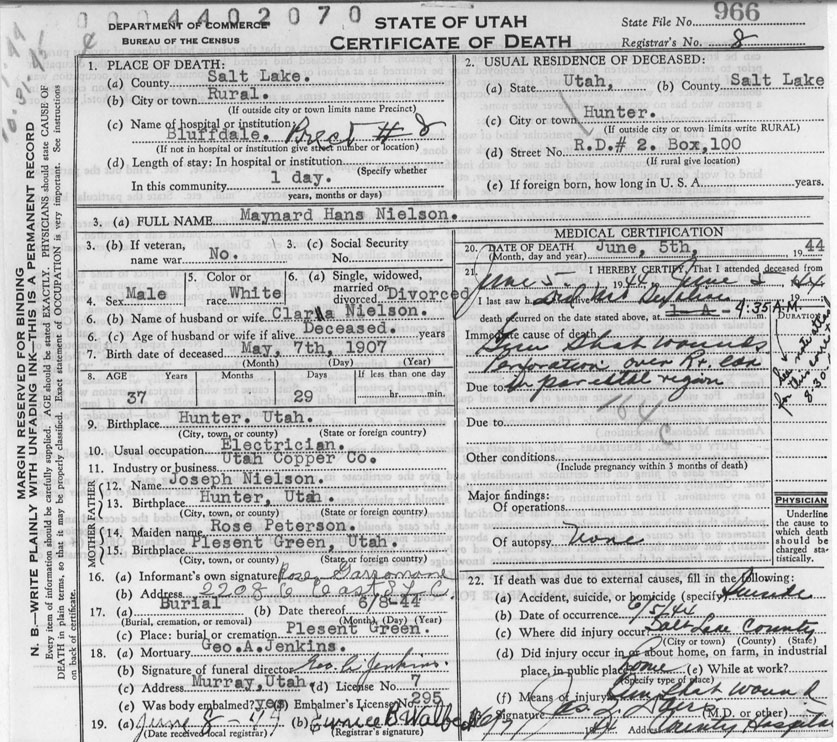 0 0 4 4 0 2 0 7 0
DEPARTMENT OF COMMERCE
BUREAU OF THE CENSUS
STATE OF UTAH
CERTIFICATE OF DEATH
State File No. 966
Registrar's No. 8
MARGIN RESERVED FOR BINDING
N. B.—WRITE PLAINLY WITH UNFADING INK—THIS IS A PERMANENT RECORD
Every item of information should be carefully supplied. AGE should be stated EXACTLY. PHYSICIANS should state CAUSE OF
DEATH in plain terms, so that it may be properly classified. Exact statement of OCCUPATION is very important. See instructions
on back of certificate.
1. PLACE OF DEATH:
(a) County Salt Lake.
(b) City or town Rural.
(If outside city or town limits name Precinct)
(c) Name of hospital or institution:
Bluffdale. Prect # 8
(If not in hospital or institution give street number or location)
(d) Length of stay: In hospital or institution
(Specify whether
In this community 1 day.
years, months or days)
2. USUAL RESIDENCE OF DECEASED:
(a) State Utah, (b) County Salt Lake
(c) City or town Hunter.
(If outside city or town limits write RURAL)
(d) Street No. R.D.# 2. Box,100
(If rural give location)
(e) If foreign born, how long in U. S. A. years.
3. (a) FULL NAME Maynard Hans Nielson.
3. (b) If veteran,
name war No.
3. (c) Social Security
No.
4. Sex Male
5. Color or
race White
6. (a) Single, widowed,
married or
divorced Divorced
6. (b) Name of husband or wife. Clara Nielson.
6. (c) Age of husband or wife if alive Deceased. years
7. Birth date of deceased May, 7th, 1907
(Month) (Day) (Year)
8. AGE Years Months Days If less than one day
37 29 hr. min.
9. Birthplace Hunter. Utah.
(City, town, or county) (State or foreign country)
10. Usual occupation Electrician.
11. Industry or business Utah Copper Co.
FATHER
12. Name Joseph Nielson.
13. Birthplace Hunter, Utah.
(City, town, or county) (State or foreign country)
MOTHER
14. Maiden name Rose Peterson.
15. Birthplace Plesent Green, Utah.
(City, town, or county) (State or foreign country)
16. (a) Informant's own signature Rose
(b) Address
17. (a) Burial (b) Date thereof 6/8-44
(Burial, cremation, or removal) (Month) (Day) (Year)
(c) Place: burial or cremation Plesent Green.
18. (a) Mortuary Geo.A.Jenkins.
(b) Signature of funeral director Geo. A Jenkins.
(c) Address Murray, Utah (d) License No. 7
(e) Was body embalmed? yes (f) Embalmer's License No. 295
19. (a) June 8 - 44 (b) Eunice B.
(Date received local registrar) (Registrar's signature)
MEDICAL CERTIFICATION
20. DATE OF DEATH June, 5th, 1944
(Month, day and year)
21. I HEREBY CERTIFY, That I attended deceased from
June 5 1944 June 5 1944
I last saw h alive Did not 19
death occurred on the date stated above, at 4:35 A.M. m.
DURATION
Immediate cause of death
Gun Shot wounds
Perforation over Rt ear
Due to in parietal region
164
c
Due to
Other conditions
(Include pregnancy within 3 months of death)
See notation
for this cause
8-30
Major findings:
Of operations
Of autopsy None
PHYSICIAN
Underline
the cause to
which death
should be
charged sta-
tistically.
22. If death was due to external causes, fill in the following:
(a) Accident, suicide, or homicide (specify) Suicide
(b) Date of occurrence 6/5/44
(c) Where did injury occur? Salt Lake County
(City or town) (County) (State)
(d) Did injury occur in or about home, on farm, in industrial
place, in public place? home (e) While at work?
(Specify type of place)
(f) Means of injury Gun Shot wound
Signature (M.D. or other)
Address County Hospital